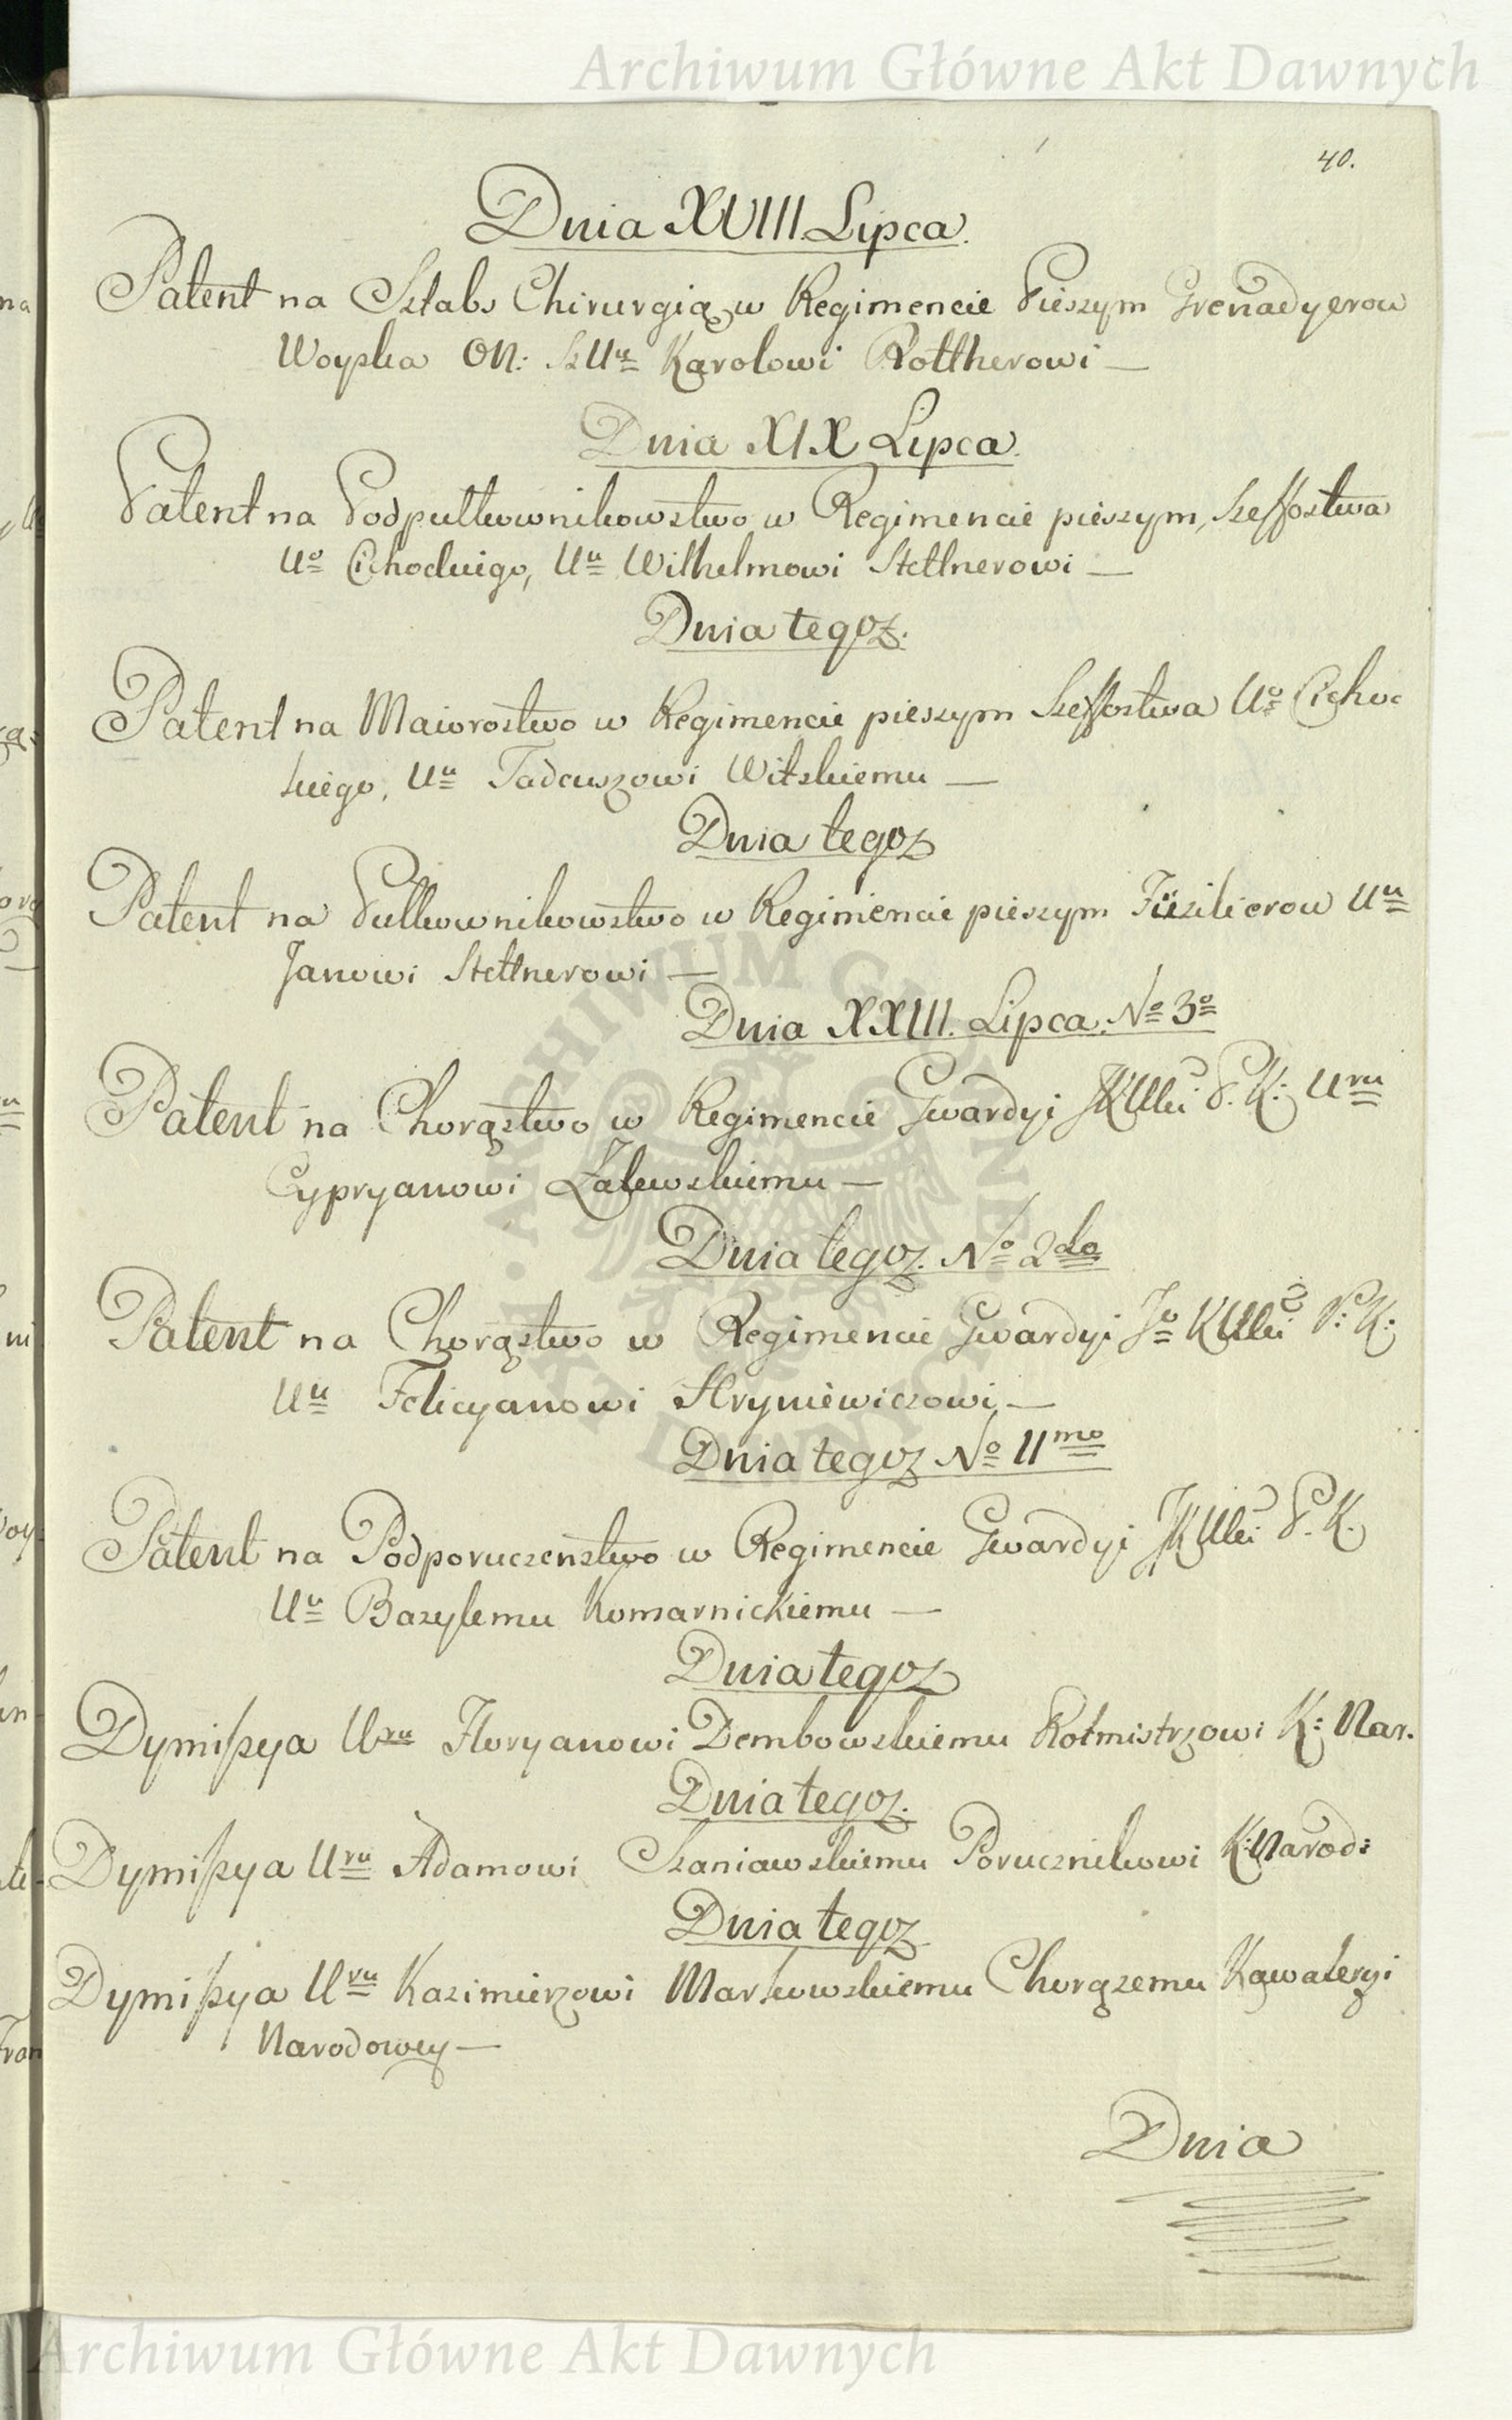 Archiwum Główne Akt Dawnych
40.
Dnia XVIII Lipca.
Patent na Sztabs Chirurgią w Regimencie Pieszym Grenadyerow
Woyska ON: Uu Karolowi Rottherowi —
Dnia XIX Lipca.
Patent na Podpułkownikowstwo w Regimencie pieszym, Szeffostwa
Uo Cichockiego, Uu Wilhelmowi Stettnerowi —
Dnia tegoż.
Patent na Maiorostwo w Regimencie pieszym Szeffostwa Uo Cichoc
kiego, Uu Tadeuszowi Witskiemu —
Dnia tegoż
Patent na Pułkownikowstwo w Regimencie pieszym Füzilierow Uu
Janowi Stettnerowi —
Dnia XXIII. Lipca. No 3o
Patent na Chorąstwo w Regimencie Gwardyi JKMci P. K: Uru
Cypryanowi Zalewskiemu —
Dnia tegoż. No 2do
Patent na Chorąstwo w Regimencie Gwardyi Jo KMci P: K:
Uu Felicyanowi Hryniewiczowi —
Dnia tegoż No 11mo
Patent na Podporuczenstwo w Regimencie Gwardyi JKMci P. K.
Uu Bazylemu Komarnickiemu —
Dnia tegoż
Dymißya Uru Floryanowi Dembowskiemu Rotmistrzowi K: Nar.
Dnia tegoż.
Dymißya Uru Adamowi Szaniawskiemu Porucznikowi K: Narod:
Dnia tegoż
Dymißya Uru Kazimierzowi Markowskiemu Chorązemu Kawaleryi
Narodowey —
Dnia
Archiwum Główne Akt Dawnych